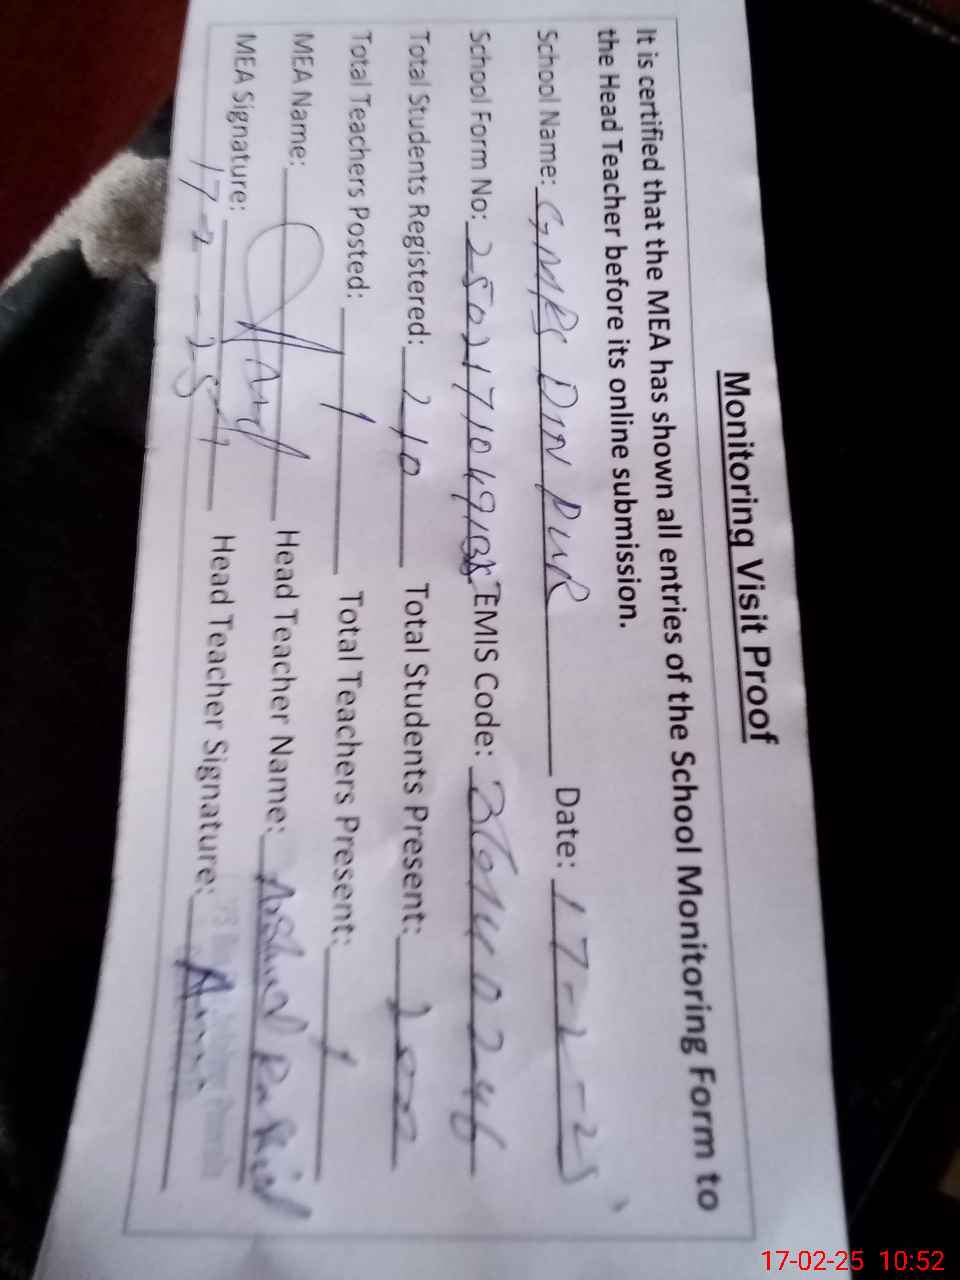 Monitoring Visit Proof
It is certified that the MEA has shown all entries of the School Monitoring Form to
the Head Teacher before its online submission.
School Name: GMPS DIN PUR Date: 17-2-25
School Form No: EMIS Code: 31614 0246
Total Students Registered: 210 Total Students Present: 200
Total Teachers Posted: 1 Total Teachers Present: 1
MEA Name: Head Teacher Name:
MEA Signature: Head Teacher Signature:
17-2-25
17-02-25 10:52